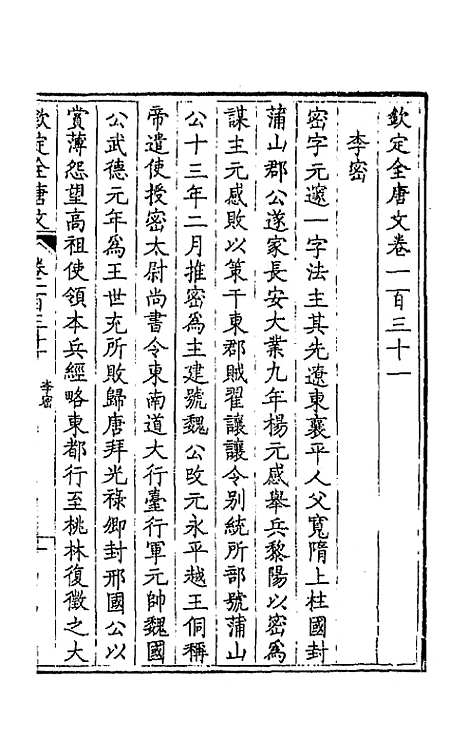 欽定全唐文卷一百三十一
李密
密字元邃一字法主其先遼東襄平人父寬隋上柱國封
蒲山郡公遂家長安大業九年楊元感舉兵黎陽以密爲
謀主元感敗以策干東郡賊翟讓讓令別統所部號蒲山
公十三年二月推密爲主建號魏公改元永平越王侗稱
帝遣使授密太尉尚書令東南道大行臺行軍元帥魏國
公武德元年爲王世充所敗歸唐拜光祿卿封邢國公以
賞薄怨望高祖使領本兵經略東都行至桃林復徵之大
欽定全唐文
卷一百三十一
李密
一